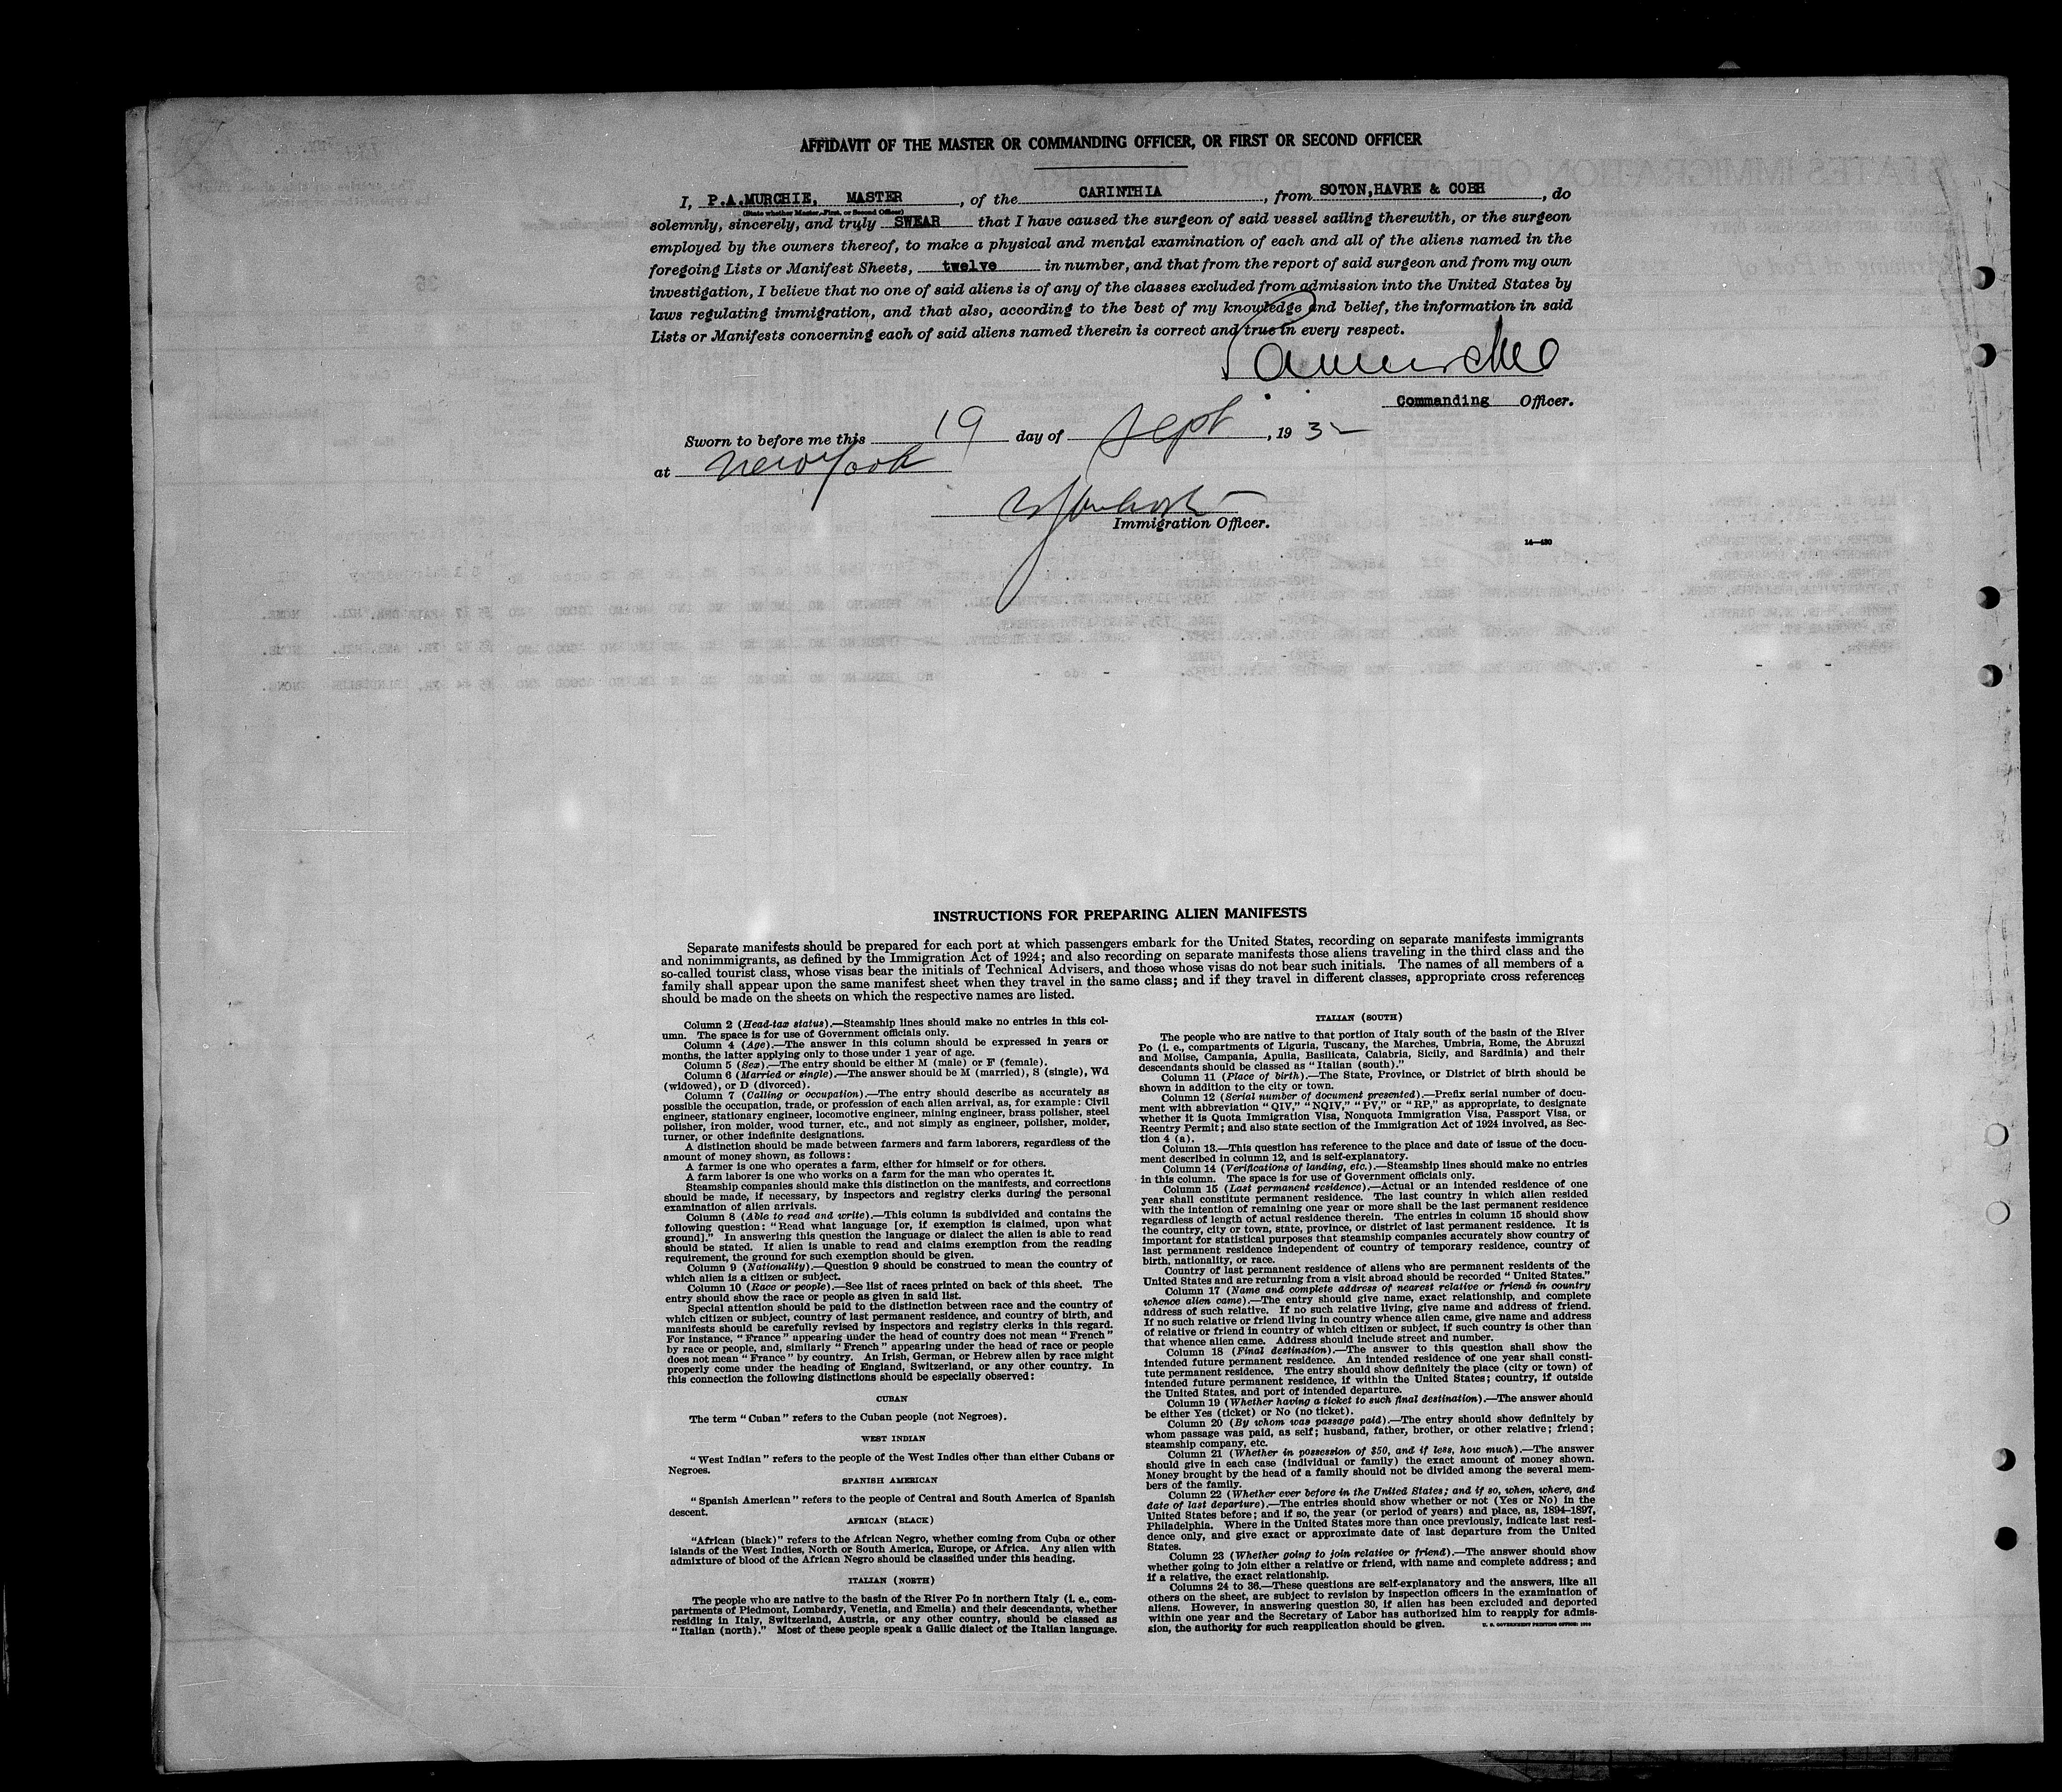 AFFIDAVIT OF THE MASTER OR COMMANDING OFFICER, OR FIRST OR SECOND OFFICER
I, P.A.MURCHIE, MASTER, of the CARINTHIA, from SOTON,HAVRE & COBH, do
(State whether Master, First, or Second Officer)
solemnly, sincerely, and truly SWEAR that I have caused the surgeon of said vessel sailing therewith, or the surgeon
employed by the owners thereof, to make a physical and mental examination of each and all of the aliens named in the
foregoing Lists or Manifest Sheets, twelve in number, and that from the report of said surgeon and from my own
investigation, I believe that no one of said aliens is of any of the classes excluded from admission into the United States by
laws regulating immigration, and that also, according to the best of my knowledge and belief, the information in said
Lists or Manifests concerning each of said aliens named therein is correct and true in every respect.
PAMurchie
Commanding Officer.
Sworn to before me this 19 day of Sept, 193
at New York
Immigration Officer.
14—430
INSTRUCTIONS FOR PREPARING ALIEN MANIFESTS
Separate manifests should be prepared for each port at which passengers embark for the United States, recording on separate manifests immigrants
and nonimmigrants, as defined by the Immigration Act of 1924; and also recording on separate manifests those aliens traveling in the third class and the
so-called tourist class, whose visas bear the initials of Technical Advisers, and those whose visas do not bear such initials. The names of all members of a
family shall appear upon the same manifest sheet when they travel in the same class; and if they travel in different classes, appropriate cross references
should be made on the sheets on which the respective names are listed.
Column 2 (Head-tax status).—Steamship lines should make no entries in this col-
umn. The space is for use of Government officials only.
Column 4 (Age).—The answer in this column should be expressed in years or
months, the latter applying only to those under 1 year of age.
Column 5 (Sex).—The entry should be either M (male) or F (female).
Column 6 (Married or single).—The answer should be M (married), S (single), Wd
(widowed), or D (divorced).
Column 7 (Calling or occupation).—The entry should describe as accurately as
possible the occupation, trade, or profession of each alien arrival, as, for example: Civil
engineer, stationary engineer, locomotive engineer, mining engineer, brass polisher, steel
polisher, iron molder, wood turner, etc., and not simply as engineer, polisher, molder,
turner, or other indefinite designations.
A distinction should be made between farmers and farm laborers, regardless of the
amount of money shown, as follows:
A farmer is one who operates a farm, either for himself or for others.
A farm laborer is one who works on a farm for the man who operates it.
Steamship companies should make this distinction on the manifests, and corrections
should be made, if necessary, by inspectors and registry clerks during the personal
examination of alien arrivals.
Column 8 (Able to read and write).—This column is subdivided and contains the
following question: "Read what language [or, if exemption is claimed, upon what
ground]." In answering this question the language or dialect the alien is able to read
should be stated. If alien is unable to read and claims exemption from the reading
requirement, the ground for such exemption should be given.
Column 9 (Nationality).—Question 9 should be construed to mean the country of
which alien is a citizen or subject.
Column 10 (Race or people).—See list of races printed on back of this sheet. The
entry should show the race or people as given in said list.
Special attention should be paid to the distinction between race and the country of
which citizen or subject, country of last permanent residence, and country of birth, and
manifests should be carefully revised by inspectors and registry clerks in this regard.
For instance, "France" appearing under the head of country does not mean "French"
by race or people, and, similarly "French" appearing under the head of race or people
does not mean "France" by country. An Irish, German, or Hebrew alien by race might
properly come under the heading of England, Switzerland, or any other country. In
this connection the following distinctions should be especially observed:
CUBAN
The term "Cuban" refers to the Cuban people (not Negroes).
WEST INDIAN
"West Indian" refers to the people of the West Indies other than either Cubans or
Negroes.
SPANISH AMERICAN
"Spanish American" refers to the people of Central and South America of Spanish
descent.
AFRICAN (BLACK)
"African (black)" refers to the African Negro, whether coming from Cuba or other
islands of the West Indies, North or South America, Europe, or Africa. Any alien with
admixture of blood of the African Negro should be classified under this heading.
ITALIAN (NORTH)
The people who are native to the basin of the River Po in northern Italy (i. e., com-
partments of Piedmont, Lombardy, Venetia, and Emelia) and their descendants, whether
residing in Italy, Switzerland, Austria, or any other country, should be classed as
"Italian (north)." Most of these people speak a Gallic dialect of the Italian language.
ITALIAN (SOUTH)
The people who are native to that portion of Italy south of the basin of the River
Po (i. e., compartments of Liguria, Tuscany, the Marches, Umbria, Rome, the Abruzzi
and Molise, Campania, Apulia, Basilicata, Calabria, Sicily, and Sardinia) and their
descendants should be classed as "Italian (south)."
Column 11 (Place of birth).—The State, Province, or District of birth should be
shown in addition to the city or town.
Column 12 (Serial number of document presented).—Prefix serial number of docu-
ment with abbreviation "QIV," "NQIV," "PV," or "RP," as appropriate, to designate
whether it is Quota Immigration Visa, Nonquota Immigration Visa, Passport Visa, or
Reentry Permit; and also state section of the Immigration Act of 1924 involved, as Sec-
tion 4 (a).
Column 13.—This question has reference to the place and date of issue of the docu-
ment described in column 12, and is self-explanatory.
Column 14 (Verifications of landing, etc.).—Steamship lines should make no entries
in this column. The space is for use of Government officials only.
Column 15 (Last permanent residence).—Actual or an intended residence of one
year shall constitute permanent residence. The last country in which alien resided
with the intention of remaining one year or more shall be the last permanent residence
regardless of length of actual residence therein. The entries in column 15 should show
the country, city or town, state, province, or district of last permanent residence. It is
important for statistical purposes that steamship companies accurately show country of
last permanent residence independent of country of temporary residence, country of
birth, nationality, or race.
Country of last permanent residence of aliens who are permanent residents of the
United States and are returning from a visit abroad should be recorded "United States."
Column 17 (Name and complete address of nearest relative or friend in country
whence alien came).—The entry should give name, exact relationship, and complete
address of such relative. If no such relative living, give name and address of friend.
If no such relative or friend living in country whence alien came, give name and address
of relative or friend in country of which citizen or subject, if such country is other than
that whence alien came. Address should include street and number.
Column 18 (Final destination).—The answer to this question shall show the
intended future permanent residence. An intended residence of one year shall consti-
tute permanent residence. The entry should show definitely the place (city or town) of
intended future permanent residence, if within the United States; country, if outside
the United States, and port of intended departure.
Column 19 (Whether having a ticket to such final destination).—The answer should
be either Yes (ticket) or No (no ticket).
Column 20 (By whom was passage paid).—The entry should show definitely by
whom passage was paid, as self; husband, father, brother, or other relative; friend;
steamship company, etc.
Column 21 (Whether in possession of $50, and if less, how much).—The answer
should give in each case (individual or family) the exact amount of money shown.
Money brought by the head of a family should not be divided among the several mem-
bers of the family.
Column 22 (Whether ever before in the United States; and if so, when, where, and
date of last departure).—The entries should show whether or not (Yes or No) in the
United States before; and if so, the year (or period of years) and place, as, 1894–1897,
Philadelphia. Where in the United States more than once previously, indicate last resi-
dence only, and give exact or approximate date of last departure from the United
States.
Column 23 (Whether going to join relative or friend).—The answer should show
whether going to join either a relative or friend, with name and complete address; and
if a relative, the exact relationship.
Columns 24 to 36.—These questions are self-explanatory and the answers, like all
others on the sheet, are subject to revision by inspection officers in the examination of
aliens. However, in answering question 30, if alien has been excluded and deported
within one year and the Secretary of Labor has authorized him to reapply for admis-
sion, the authority for such reapplication should be given.
U. S. GOVERNMENT PRINTING OFFICE